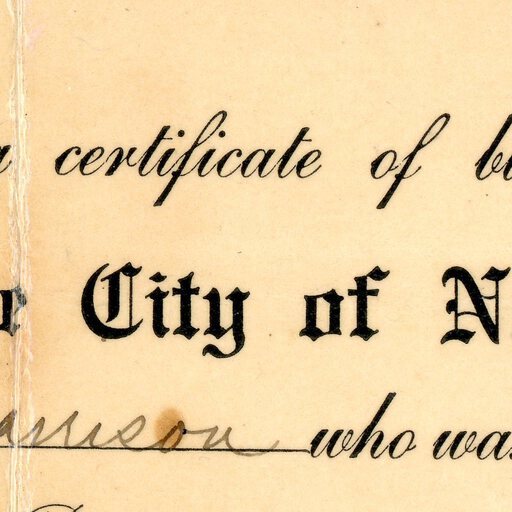 a certificate of b
e City of N
arrison who was